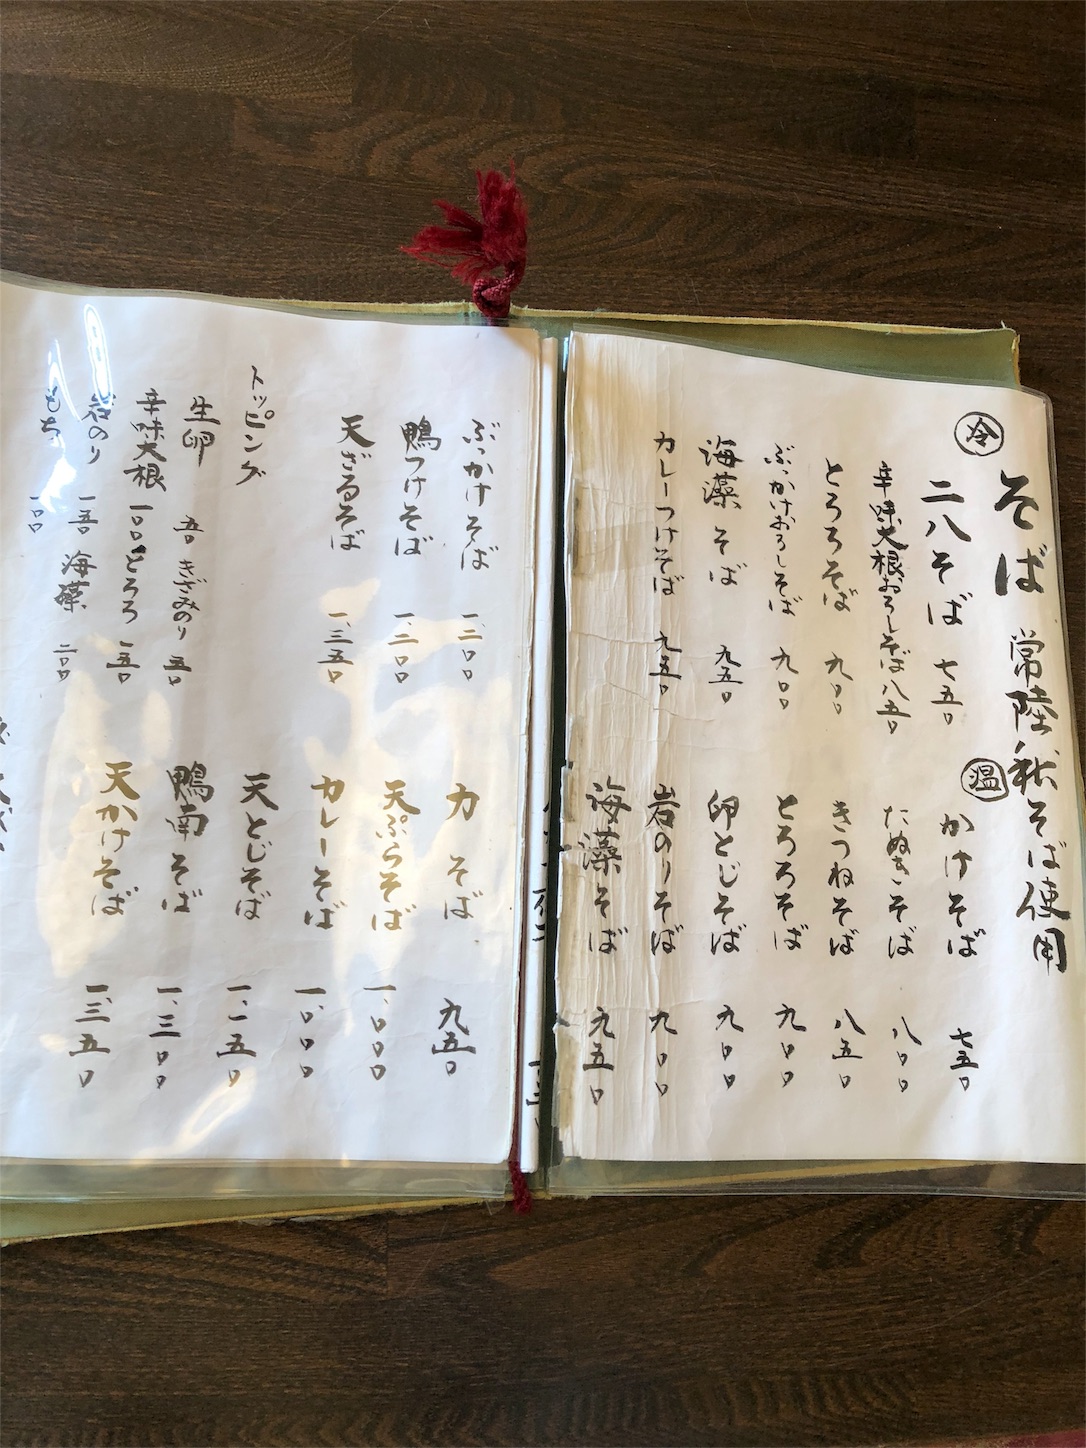 そば 常陸秋そば使用
冷
二八そば 七五〇
辛味大根おろしそば 八五〇
とろろそば 九〇〇
ぶっかけおろしそば 九〇〇
海藻そば 九五〇
カレーつけそば 九五〇
温
かけそば 七五〇
たぬきそば 八〇〇
きつねそば 八五〇
とろろそば 九〇〇
卵とじそば 九〇〇
岩のりそば 九〇〇
海藻そば 九五〇
ぶっかけそば 一、二〇〇
鴨つけそば 一、二〇〇
天ざるそば 一、三五〇
トッピング
生卵 五〇 きざみのり 五〇
辛味大根 一〇〇 とろろ 一五〇
岩のり 一五〇 海藻 二〇〇
もち 一〇〇
力そば 九五〇
天ぷらそば 一、〇〇〇
カレーそば 一、〇〇〇
天とじそば 一、一五〇
鴨南そば 一、三〇〇
天かけそば 一、三五〇